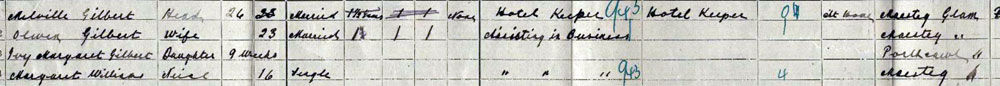 Melville Gilbert Head 26 23 Married 1 1 None Hotel Keeper 943 Hotel Keeper 9 At Home Maesteg Glam
Olwen Gilbert Wife 23 Married 1 1 Assisting in Business Maesteg "
Ivy Margaret Gilbert Daughter 9 Weeks Porthcawl "
Margaret Williams Niece 16 Single " " " 943 4 Maesteg "